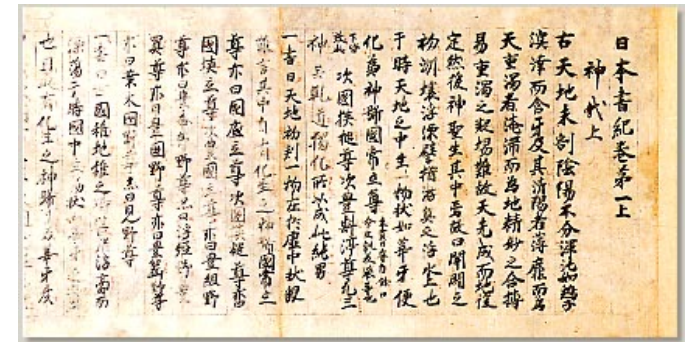 日本書紀巻第一上
神代上
古天地未剖陰陽不分渾沌如鶏子
溟涬而含牙及其清陽者薄靡而為
天重濁者淹滞而為地精妙之合搏
易重濁之凝堨難故天先成而地後
定然後神聖生其中焉故曰開闢之
初洲壌浮漂譬猶游魚之浮水上也
于時天地之中生一物状如葦牙便
化為神號國常立尊
次國狭槌尊次豊斟渟尊凡三
神矣乾道獨化所以成此純男
一書曰天地初判一物在於虚中状貌
難言其中自有化生之神號國常立
尊亦曰國底立尊次國狭槌尊亦曰
國狭立尊次豊國主尊亦曰豊組野
尊亦曰豊香節野尊亦曰浮經野豊
買尊亦曰豊國野尊亦曰豊囓野尊
亦曰葉木國野尊亦曰見野尊
一書曰國稚地稚之時浮膏而
漂蕩于時國中生物状
也因此有化生之神號可美葦牙彦